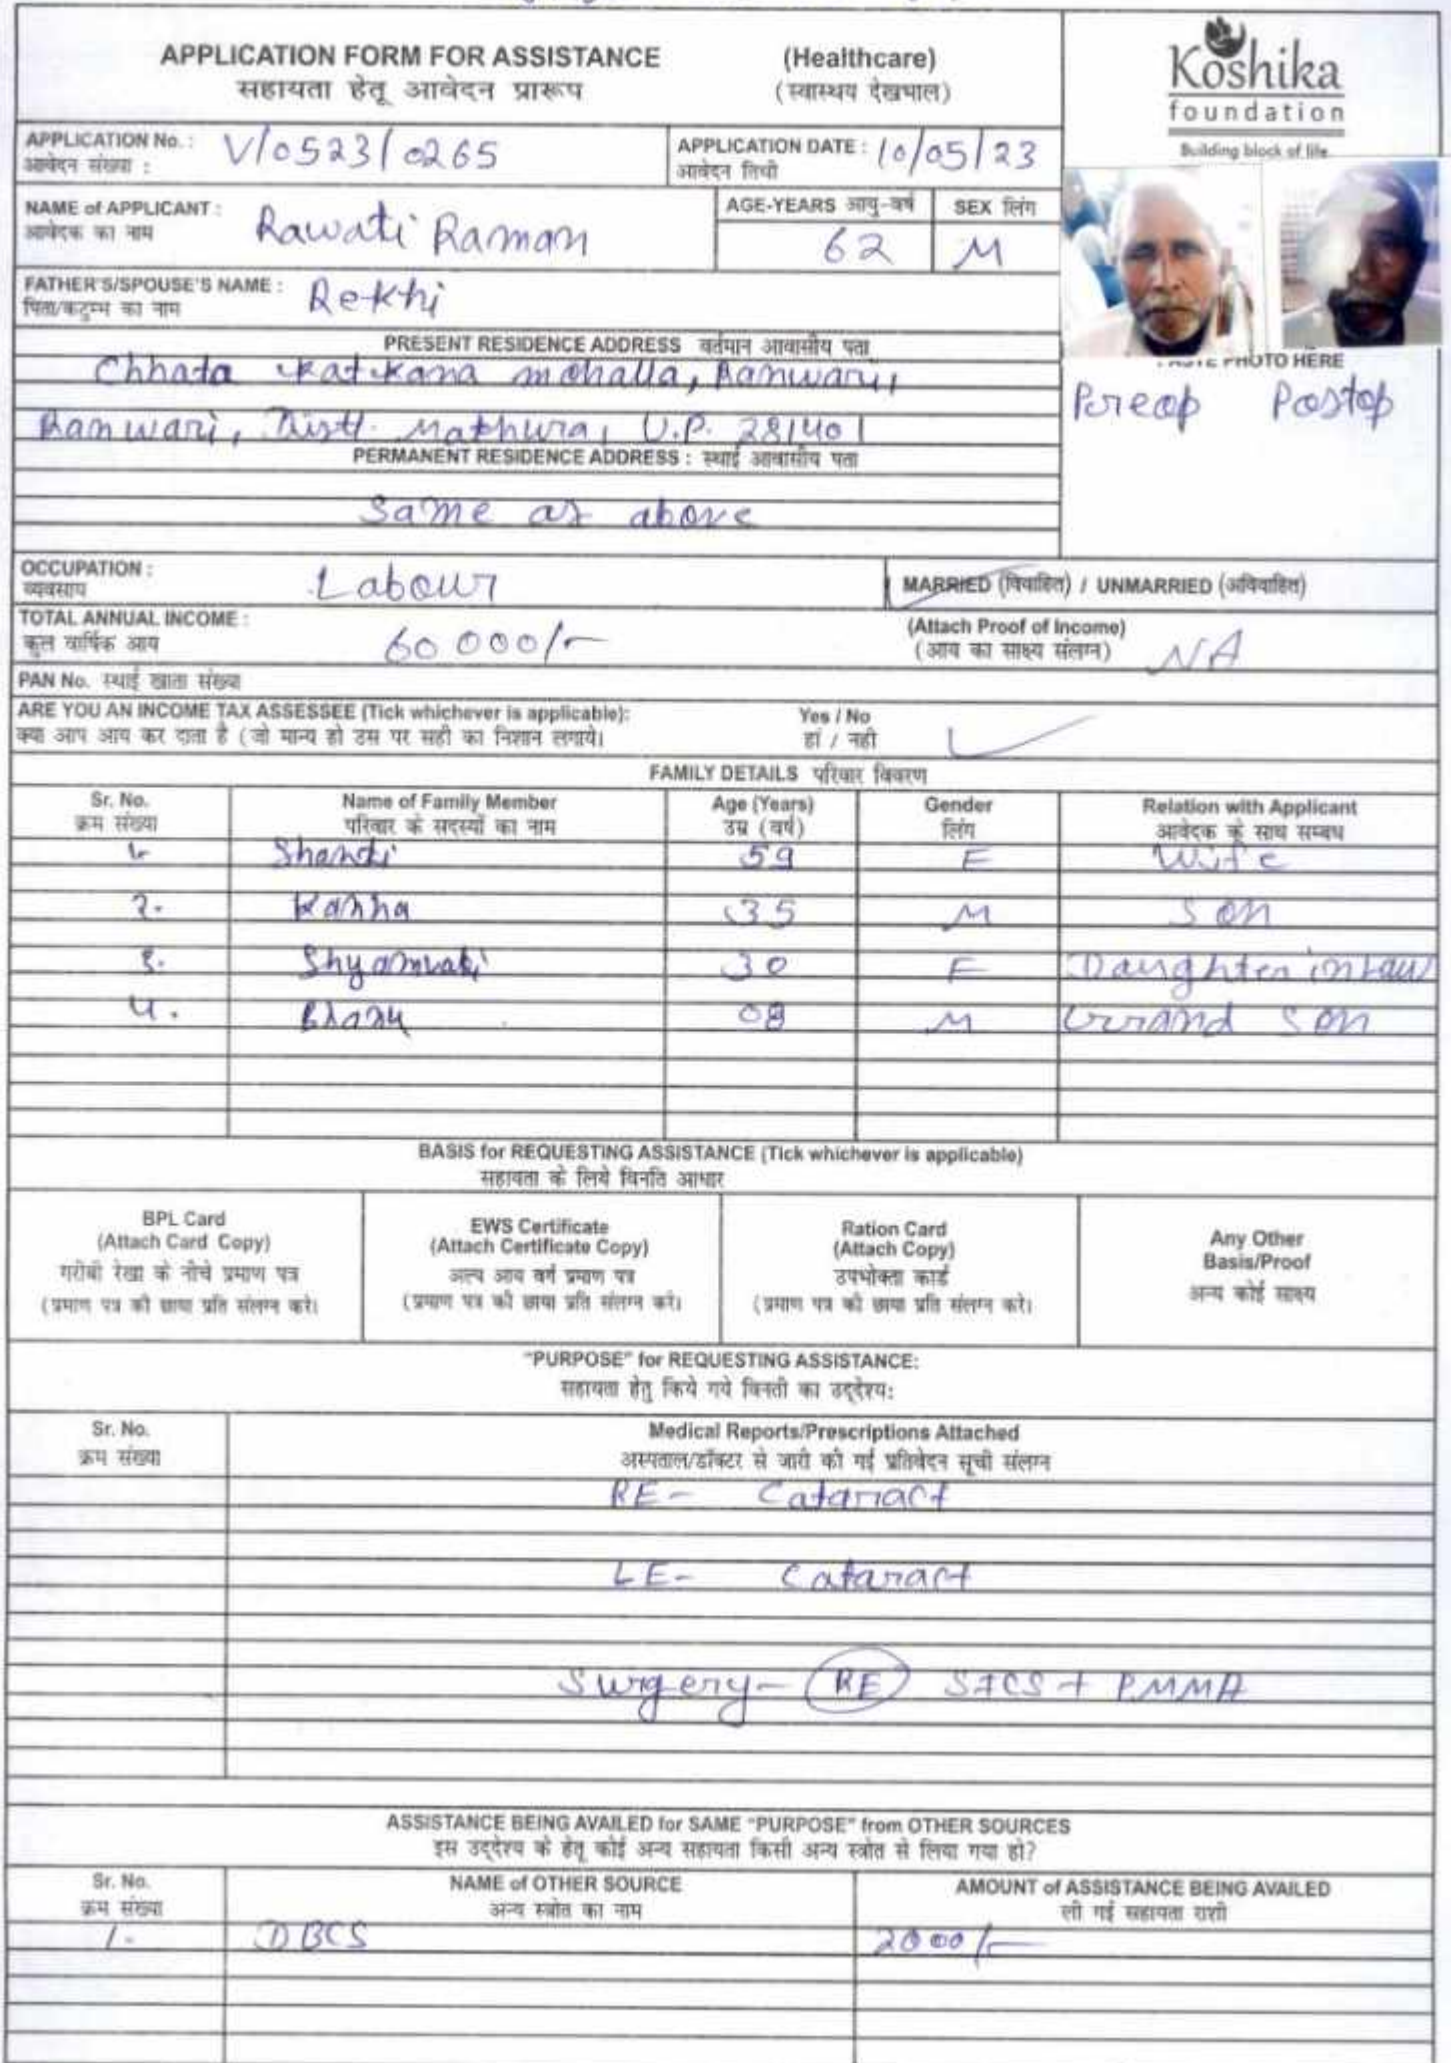 APPLICATION FORM FOR ASSISTANCE (Healthcare)
सहायता हेतू आवेदन प्रारूप (स्वास्थय देखभाल)
Koshika
foundation
Building block of life
APPLICATION No. : V/0523/0265
आवेदन संख्या :
APPLICATION DATE : 10/05/23
आवेदन तिथी
NAME of APPLICANT : Rawati Raman
आवेदक का नाम
AGE-YEARS आयु-वर्ष SEX लिंग
62 M
FATHER'S/SPOUSE'S NAME : Rekhi
पिता/कटुम्भ का नाम
PRESENT RESIDENCE ADDRESS वर्तमान आवासीय पता
Chhata Katikana mohalla, Ranwari,
Ranwari, Distt. Mathura, U.P. 281401
PERMANENT RESIDENCE ADDRESS : स्थाई आवासीय पता
Same as above
PHOTO HERE
Preop Postop
OCCUPATION : Labour
व्यवसाय
MARRIED (विवाहित) / UNMARRIED (अविवाहित)
TOTAL ANNUAL INCOME : 60000/-
कुल वार्षिक आय
(Attach Proof of Income)
(आय का साक्ष्य संलग्न) NA
PAN No. स्थाई खाता संख्या
ARE YOU AN INCOME TAX ASSESSEE (Tick whichever is applicable): Yes / No
क्या आप आय कर दाता है (जो मान्य हो उस पर सही का निशान लगाये। हां / नही
FAMILY DETAILS परिवार विवरण
Sr. No. Name of Family Member Age (Years) Gender Relation with Applicant
क्रम संख्या परिवार के सदस्यों का नाम उम्र (वर्ष) लिंग आवेदक के साथ सम्बध
1- Shanti 59 F Wife
2- Kanha 35 M Son
3. Shyamvati 30 F Daughter in Law
4. Bhanu 08 M Grand Son
BASIS for REQUESTING ASSISTANCE (Tick whichever is applicable)
सहायता के लिये विनति आधार
BPL Card
(Attach Card Copy)
गरीबी रेखा के नीचे प्रमाण पत्र
(प्रमाण पत्र की छाया प्रति संलग्न करे।
EWS Certificate
(Attach Certificate Copy)
अल्प आय वर्ग प्रमाण पत्र
(प्रमाण पत्र की छाया प्रति संलग्न करे।
Ration Card
(Attach Copy)
उपभोक्ता कार्ड
(प्रमाण पत्र की छाया प्रति संलग्न करे।
Any Other
Basis/Proof
अन्य कोई साक्ष्य
"PURPOSE" for REQUESTING ASSISTANCE:
सहायता हेतु किये गये विनती का उद्देश्य:
Sr. No. Medical Reports/Prescriptions Attached
क्रम संख्या अस्पताल/डॉक्टर से जारी की गई प्रतिवेदन सूची संलग्न
RE- Cataract
LE- Cataract
Surgery- RE SICS + PMMA
ASSISTANCE BEING AVAILED for SAME "PURPOSE" from OTHER SOURCES
इस उद्देश्य के हेतू कोई अन्य सहायता किसी अन्य स्त्रोत से लिया गया हो?
Sr. No. NAME of OTHER SOURCE AMOUNT of ASSISTANCE BEING AVAILED
क्रम संख्या अन्य स्त्रोत का नाम ली गई सहायता राशी
1- DBCS 2000/-